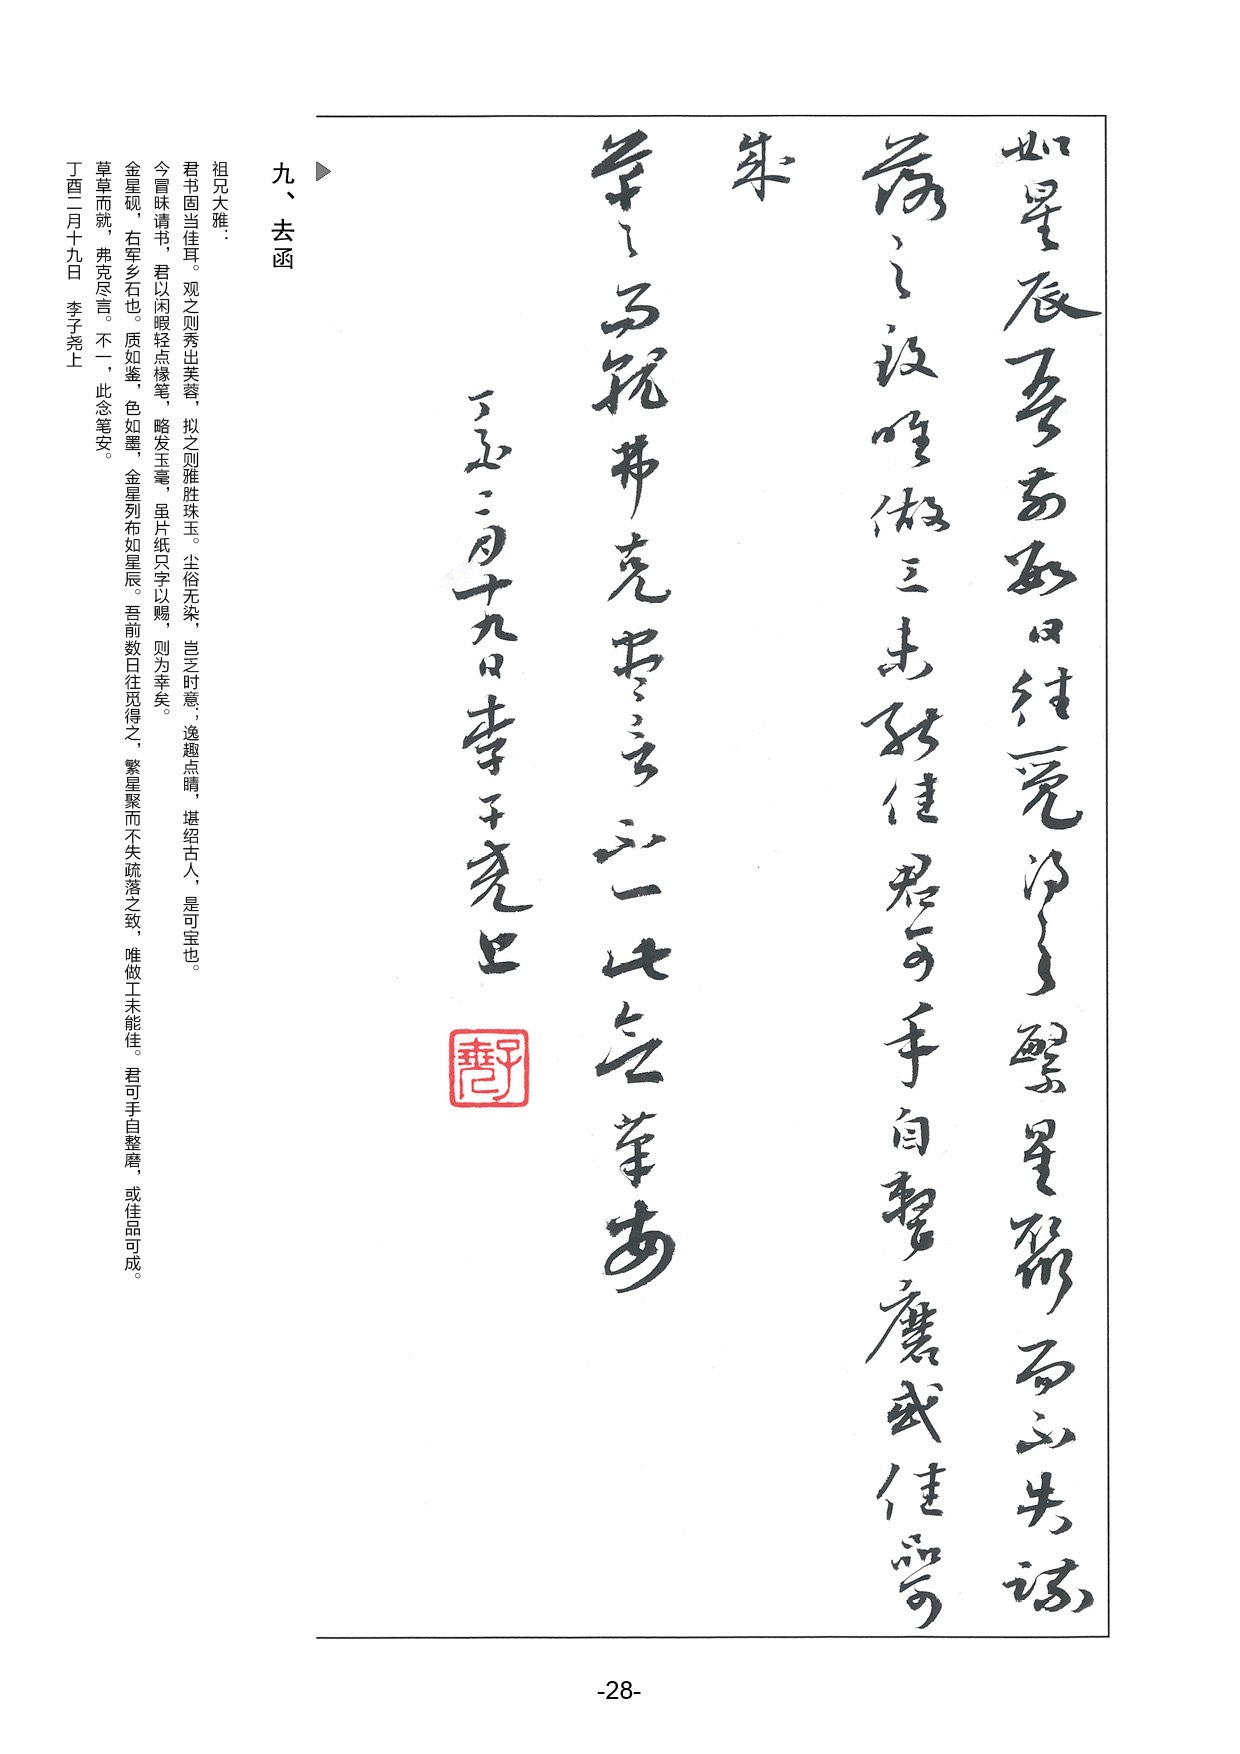 如星辰吾前数日往觅得之繁星聚而不失疏
落之致唯做工未能佳君可手自整磨或佳品可
成
草草而就弗克尽言不一此念笔安
丁酉二月十九日李子尧上
子尧
九、去函
祖兄大雅：
君书固当佳耳。观之则秀出芙蓉，拟之则雅胜珠玉。尘俗无染，岂乏时意；逸趣点睛，堪绍古人，是可宝也。
今冒昧请书，君以闲暇轻点椽笔，略发玉毫，虽片纸只字以赐，则为幸矣。
金星砚，右军乡石也。质如鉴，色如墨，金星列布如星辰。吾前数日往觅得之，繁星聚而不失疏落之致，唯做工未能佳。君可手自整磨，或佳品可成。
草草而就，弗克尽言。不一，此念笔安。
丁酉二月十九日 李子尧上
-28-